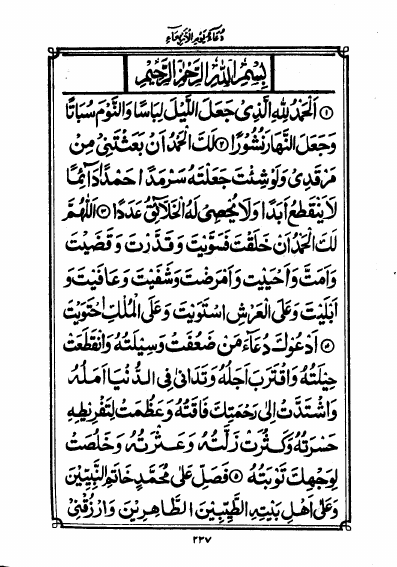 دُعَائے یَوْمِ الْاَرْبِعَاءِ
بِسْمِ اللّٰهِ الرَّحْمٰنِ الرَّحِیْمِ
① اَلْحَمْدُ لِلّٰهِ الَّذِیْ جَعَلَ اللَّیْلَ لِبَاسًا وَالنَّوْمَ سُبَاتًا
وَجَعَلَ النَّهَارَ نُشُوْرًا ② لَكَ الْحَمْدُ اَنْ بَعَثْتَنِیْ مِنْ
مَرْقَدِیْ وَلَوْ شِئْتَ جَعَلْتَهُ سَرْمَدًا حَمْدًا دَآئِمًا
لَا یَنْقَطِعُ اَبَدًا وَلَا یُحْصِیْ لَهُ الْخَلَآئِقُ عَدَدًا ③ اَللّٰهُمَّ
لَكَ الْحَمْدُ اَنْ خَلَقْتَ فَسَوَّیْتَ وَقَدَّرْتَ وَقَضَیْتَ
وَاَمَتَّ وَاَحْیَیْتَ وَاَمْرَضْتَ وَشَفَیْتَ وَعَافَیْتَ وَ
اَبْلَیْتَ وَعَلَی الْعَرْشِ اسْتَوَیْتَ وَعَلَی الْمُلْكِ احْتَوَیْتَ
⑤ اَدْعُوْكَ دُعَآءَ مَنْ ضَعُفَتْ وَسِیْلَتُهُ وَانْقَطَعَتْ
حِیْلَتُهُ وَاقْتَرَبَ اَجَلُهُ وَتَدَانٰی فِی الدُّنْیَا اَمَلُهُ
وَاشْتَدَّتْ اِلٰی رَحْمَتِكَ فَاقَتُهُ وَعَظُمَتْ لِتَفْرِیْطِهِ
حَسْرَتُهُ وَكَثُرَتْ زَلَّتُهُ وَعَثْرَتُهُ وَخَلُصَتْ
لِوَجْهِكَ تَوْبَتُهُ ⑤ فَصَلِّ عَلٰی مُحَمَّدٍ خَاتَمِ النَّبِیِّیْنَ
وَعَلٰی اَهْلِ بَیْتِهِ الطَّیِّبِیْنَ الطَّاهِرِیْنَ وَارْزُقْنِیْ
۲۳۷